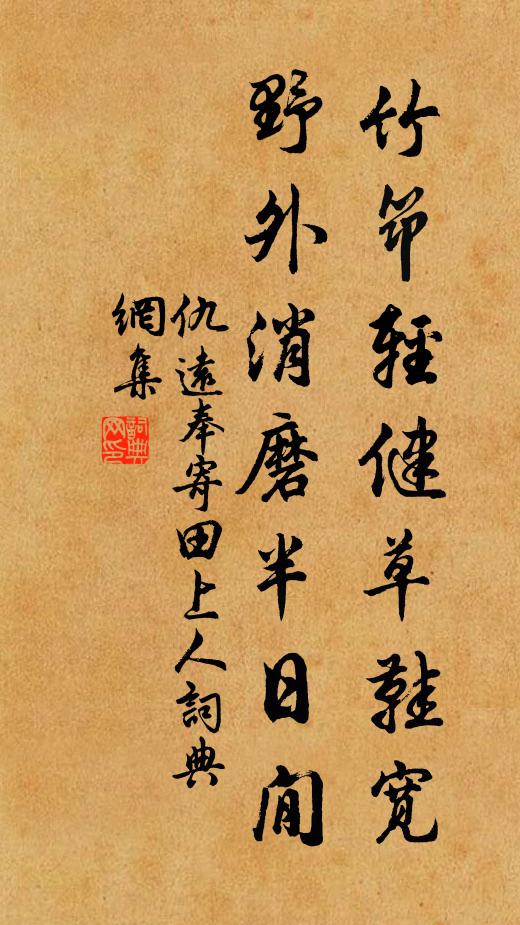 竹筇輕健草鞋寬
野外消磨半日閒
仇遠奉寄田上人詞典
網集
詞典
网印